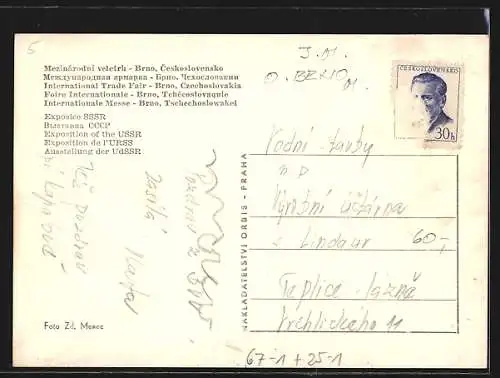 5
Mezinárodní veletrh - Brno, Československo
Международная ярмарка - Брно, Чехословакия
International Trade Fair - Brno, Czechoslovakia
Foire Internationale - Brno, Tchécoslovaquie
Internationale Messe - Brno, Tschechoslowakei
Exposice SSSR
Выставка СССР
Exposition of the USSR
Exposition de l'URSS
Ausstellung der UdSSR
pozdrav z
Zasílá
Foto Zd. Menec
NAKLADATELSTVÍ ORBIS - PRAHA
ČESKOSLOVENSKO
30h
Vodní stavby
n p
Výrobní účtárna
Lindaur
60,-
Teplice - lázně
Vrchlického 11
67-1+25-1